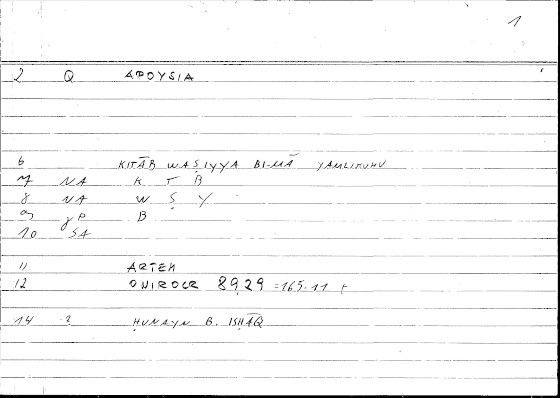 1
2 Q APOYSIA
6 KITĀB WAṢIYYA BI-MĀ YAMLIKUHU
7 NA K T B
8 NA W Ṣ Y
9 gP B
10 SA
11 ARTEM
12 ONIROCR 89,29 =165.11 f
14 2 ḤUNAYN B. ISḤĀQ